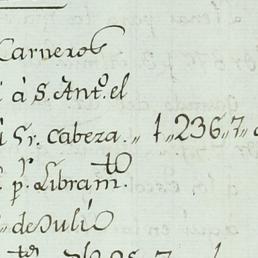 Carneros
á S. Antº. el
Sr. Cabeza. „ 1„236„7„
pr. Libramto.
„ de Julio